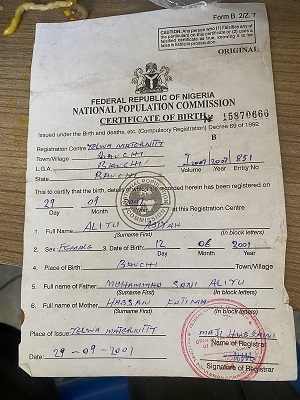 Form B. 2/Z. 7
CAUTION: Any person who (1) Falsifies any of
the particulars on this certificate or (2) uses a
falsified certificate as true, knowing it to be
false is liable to prosecution.
ORIGINAL
FEDERAL REPUBLIC OF NIGERIA
NATIONAL POPULATION COMMISSION
CERTIFICATE OF BIRTH № 15870666
Issued under the Birth and deaths, etc. (Compulsory Registration) Decree 69 of 1992
B
Registration Centre YELWA MATERNITY
Town/Village BAUCHI
L.G.A. BAUCHI 2007 851
State BAUCHI Volume Year Entry No
This to certify that the birth, details of which recorded herein has been registered on
29 09 at this Registration Centre
Day Month
1. Full Name: ALIYU
(Surname First) (In block letters)
2. Sex FEMALE 3. Date of Birth: 12 06 2001
Day Month Year
4. Place of Birth: BAUCHI Town/Village
5. Full name of Father: MUHAMMAD SANI ALIYU
(Surname First) (In block letters)
6. Full name of Mother: HASSAN
(Surname First) (In block letters)
Place of Issue: YELWA MATERNITY
Name of Registrar
Date: 29-09-2007
Signature of Registrar